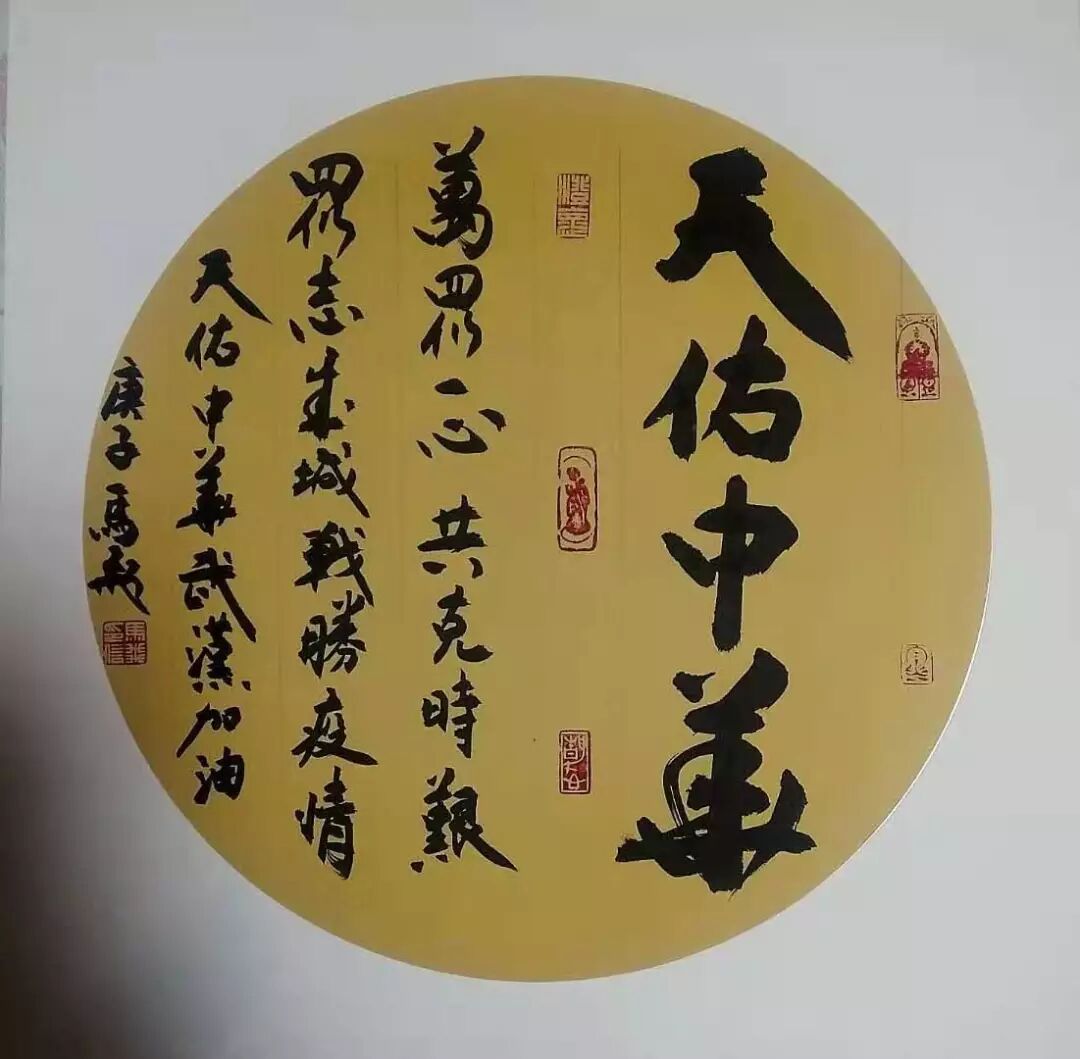 天佑中華
萬眾一心共克時艱
眾志成城戰勝疫情
天佑中華武漢加油
庚子馬